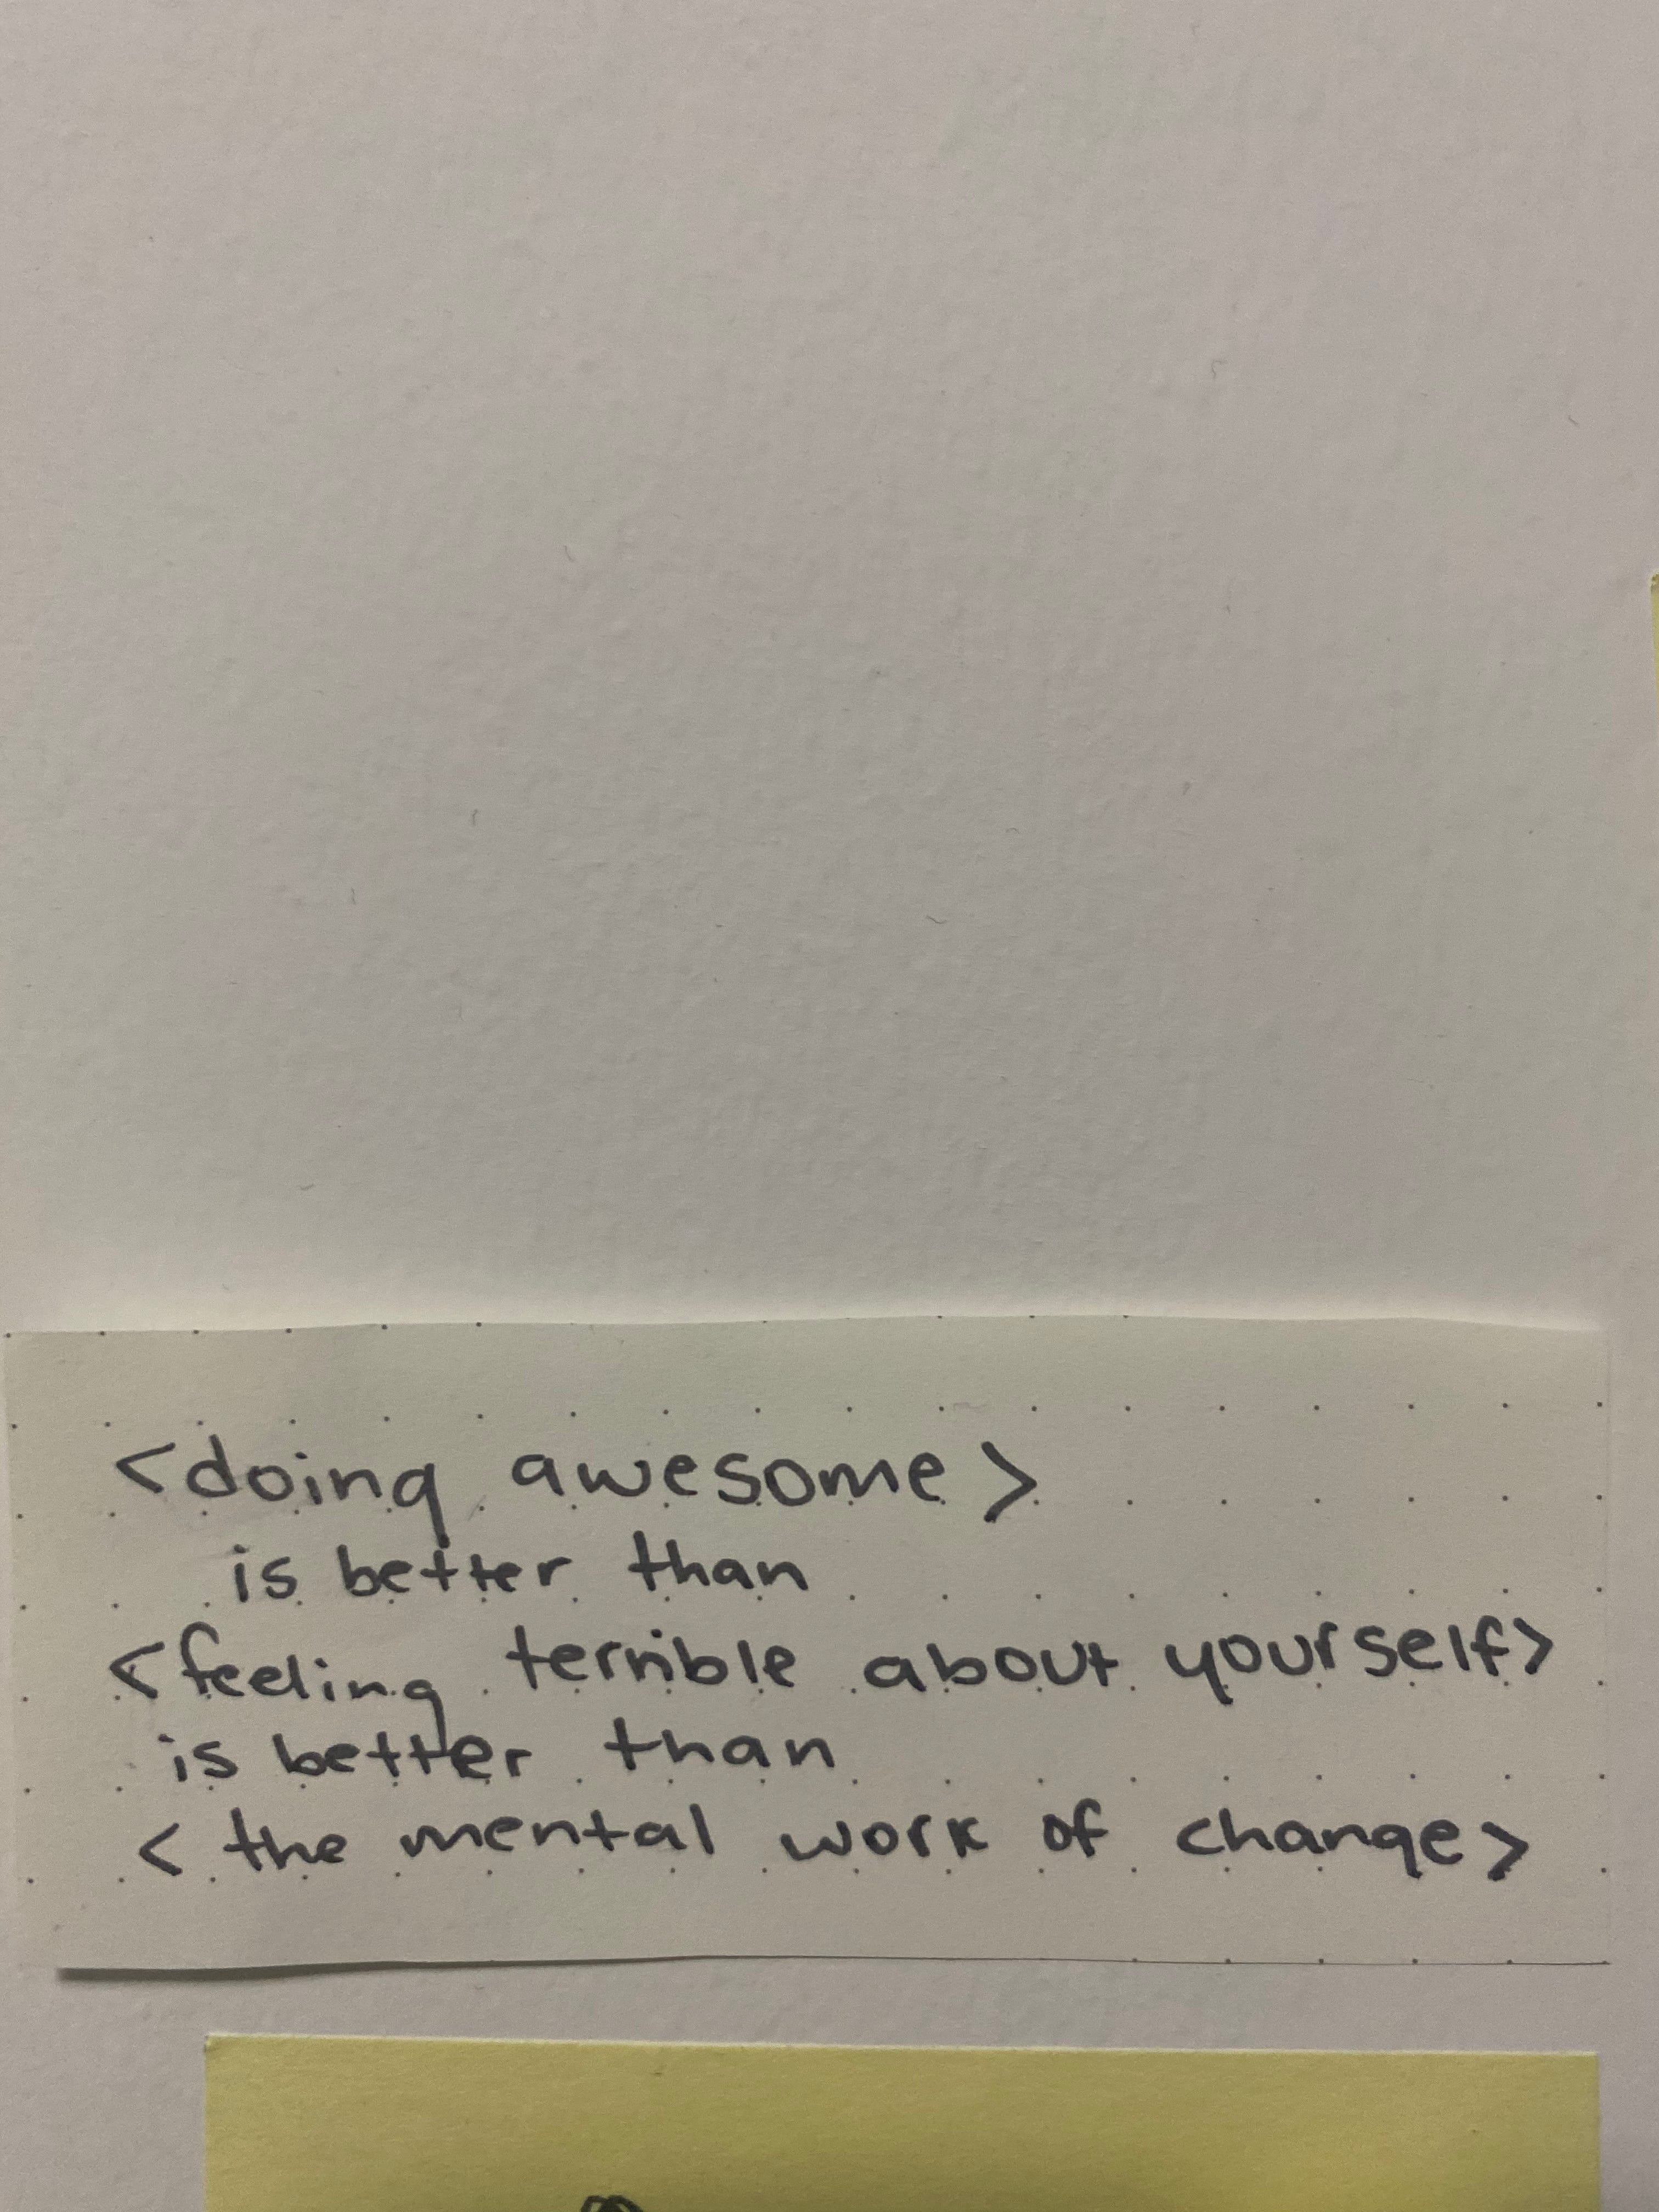 <doing awesome>
is better than
<feeling terrible about yourself>
is better than
< the mental work of change>